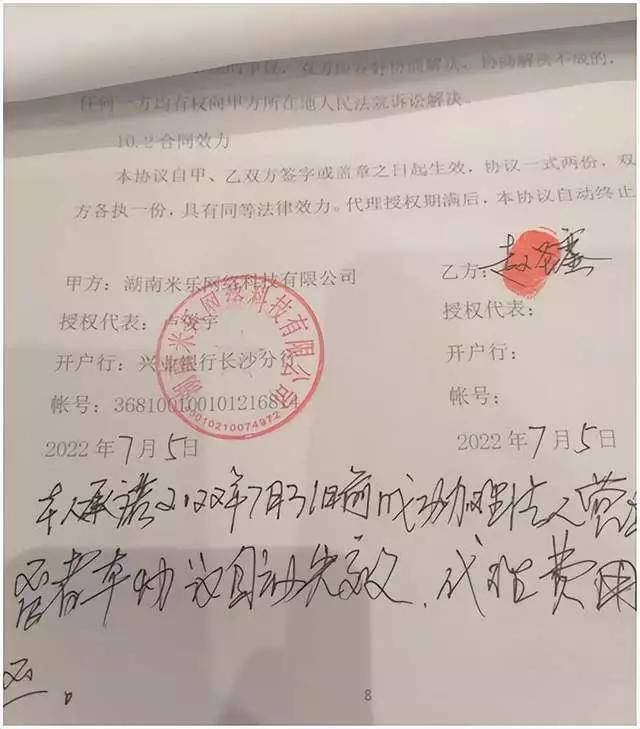 的争议，双方应友好协商解决，协商解决不成的，
任何一方均有权向甲方所在地人民法院诉讼解决。
10.2合同效力
本协议自甲、乙双方签字或盖章之日起生效，协议一式两份，双
方各执一份，具有同等法律效力。代理授权期满后，本协议自动终止
甲方：湖南米乐网络科技有限公司
乙方：
授权代表：卢俊宇
授权代表：
开户行：兴业银行长沙分行
开户行：
帐号：368100100101216814
帐号：
湖南米乐网络科技有限公司
0010210074972
2022年7月5日
2022年7月5日
本人承诺2022年7月31日前成功办理法人营
否者本协议自动失效，代理费用
不
8